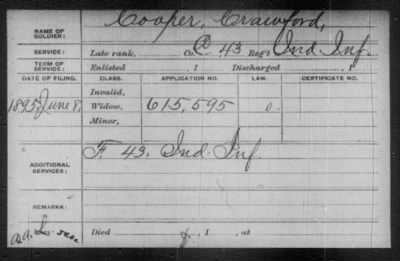 NAME OF SOLDIER: Cooper, Crawford,
SERVICE: Late rank, Co. 43 Reg't Ind. Inf.
TERM OF SERVICE: Enlisted , 1 Discharged , 1
DATE OF FILING. CLASS. APPLICATION NO. LAW. CERTIFICATE NO.
Invalid,
1895, June 8, Widow, 615,595
Minor,
F. 43. Ind. Inf.
ADDITIONAL SERVICES:
REMARKS:
Died , 1 , at